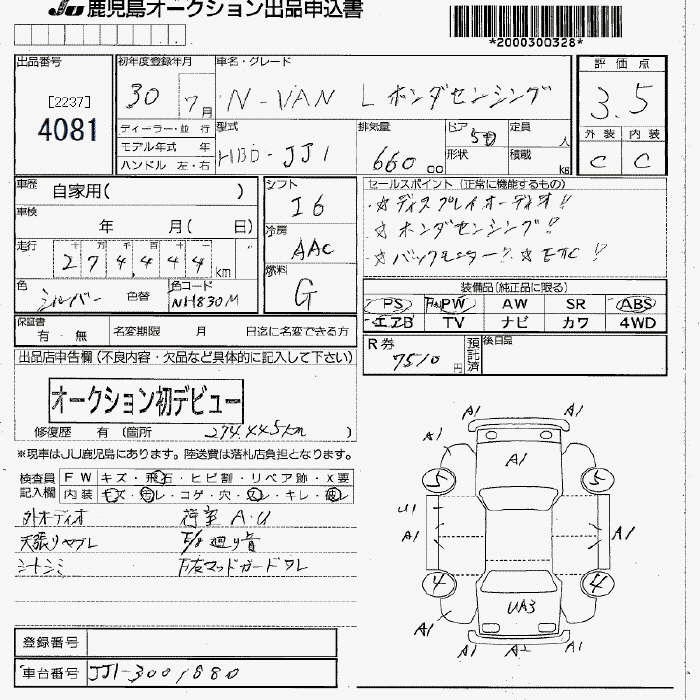 JU 鹿児島オークション出品申込書
*2000300328*
出品番号
[2237]
4081
初年度登録年月
30 7月
車名・グレード
N-VAN L ホンダセンシング
評価点
3.5
外装 内装
C C
ディーラー・並行
モデル年式 年
ハンドル 左・右
型式
HBD-JJ1
排気量
660 cc
ドア
5D
定員
人
形状
積載
kg
車歴
自家用( )
車検
年 月( 日)
走行
十 万 千 百 十 一
274,444 km
色
シルバー 色替
色コード
NH830M
シフト
I6
冷房
AAC
燃料
G
セールスポイント (正常に機能するもの)
☆ディスプレイオーディオ!!
☆ホンダセンシング!!
☆バックモニター!! ☆ETC!!
装備品(純正品に限る)
PS PW AW SR ABS
エアB TV ナビ カワ 4WD
保証書
有・無
名変期限 月 日迄に名変できる方
R券
7510円
預託済
後日品
出品店申告欄(不良内容・欠品など具体的に記入して下さい)
オークション初デビュー
修復歴 有 (箇所 274,445km )
※現車はJU鹿児島にあります。陸送費は落札店負担となります。
検査員記入欄
FW キズ・飛石・ヒビ割・リペア跡・X要
内装 キズ・汚レ・コゲ・穴・スレ・キレ・破レ
外オーディオ
天張リヤブレ
シートシミ
F/8 廻り音
下右マッドガードワレ
A1 A1
A1 A1 A1
5 5
U1
A1 A1
4 4
UA3
A1 A1
A1 A2
登録番号
車台番号 JJ1-3001880